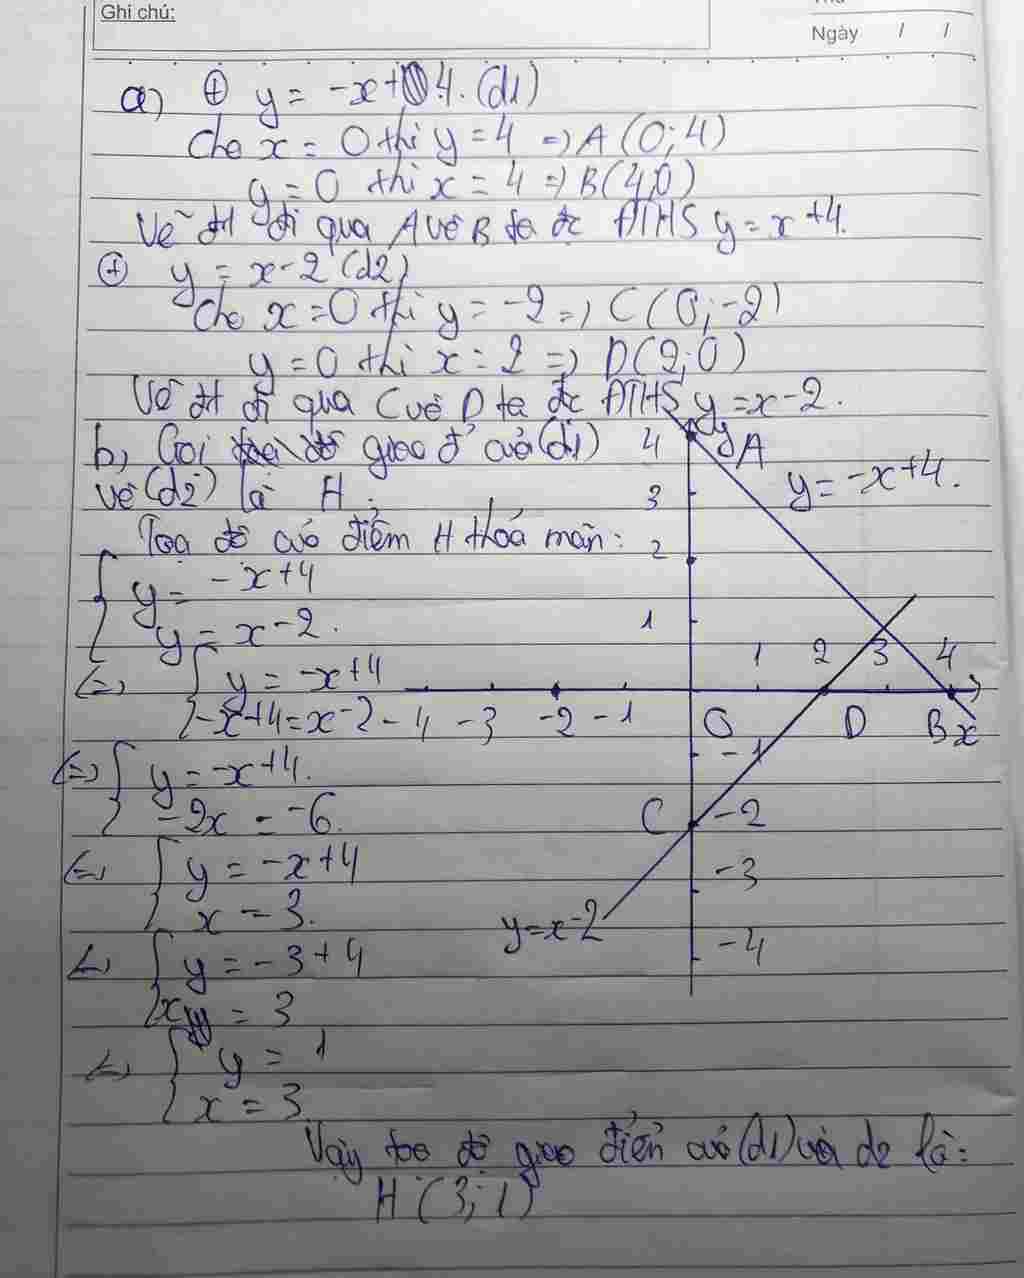 Ghi chú:
Ngày / /
a) ⊕ y = -x+4. (d1)
Cho x = 0 thì y = 4 => A (0; 4)
y = 0 thì x = 4 => B(4;0)
Vẽ đt đi qua A và B ta đc ĐTHS y = x +4.
⊕ y = x-2 (d2)
Cho x = 0 thì y = -2 => C (0; -2)
y = 0 thì x = 2 => D(2;0)
Vẽ đt đi qua C và D ta đc ĐTHS y = x-2.
b, Gọi giao đ' của (d1)
và (d2) là H.
Toạ độ của điểm H thoả mãn:
{ y = -x+4
y = x-2.
<=> { y = -x+4
-x+4 = x-2
<=> { y = -x+4.
-2x = -6.
<=> { y = -x+4
x = 3.
<=> { y = -3+4
x = 3
<=> { y = 1
x = 3
Vậy toạ độ giao điểm của (d1) và d2 là:
H (3; 1)
y
A
4
3
2
1
y = -x+4.
-4 -3 -2 -1
1 2 3 4
O D B x
-1
C -2
-3
-4
y=x-2